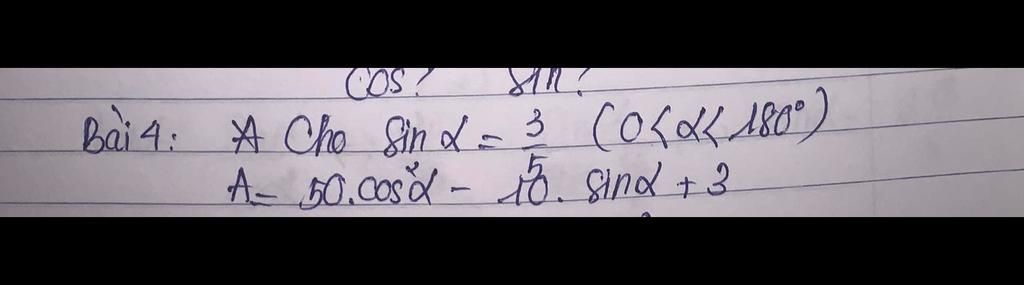 cos? sin?
Bài 4: A Cho sin α = 3/5 (0 < α < 180°)
A = 50.cos²α - 10. sinα + 3